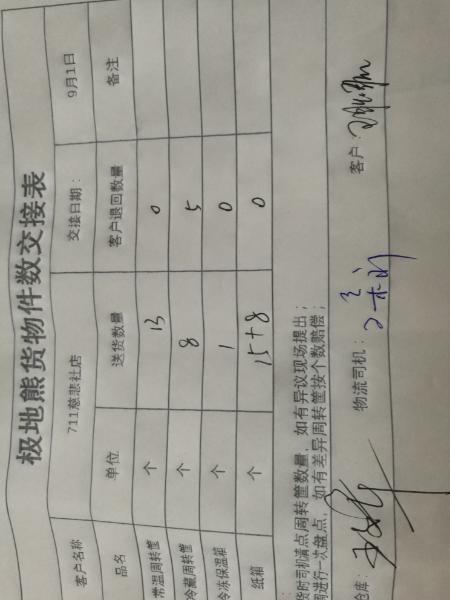 极地熊货物件数交接表
客户名称 711慈悲社店 交接日期: 9月1日
品名 单位 送货数量 客户退回数量 备注
常温周转筐 个 13 0
冷藏周转筐 个 8 5
冷冻保温箱 个 1 0
纸箱 个 15+8 0
货时司机清点周转筐数量,如有异议现场提出;
周进行一次盘点,如有差异周转筐按个数赔偿;
仓库: 物流司机: 客户: